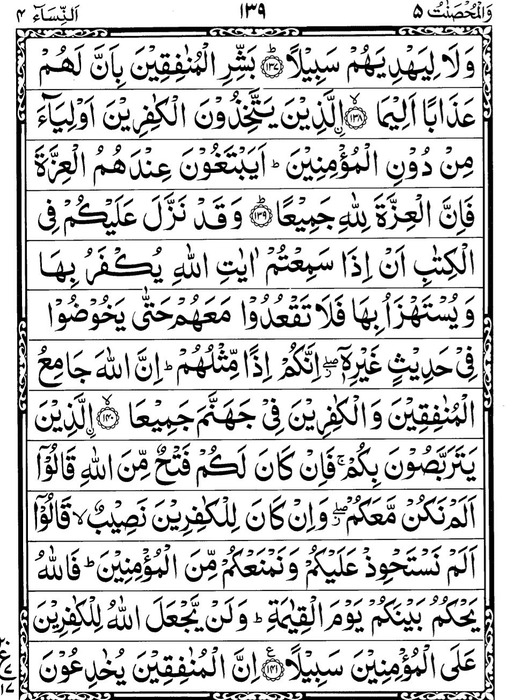 وَالْمُحْصَنٰتُ ٥ ١٣٩ اَلنِّسَآء ٤
وَلَا لِيَهْدِيَهُمْ سَبِيْلًا ؕ﴿١٣٧﴾ بَشِّرِ الْمُنٰفِقِيْنَ بِاَنَّ لَهُمْ
عَذَابًا اَلِيْمَا ۙ﴿١٣٨﴾ ۨالَّذِيْنَ يَتَّخِذُوْنَ الْكٰفِرِيْنَ اَوْلِيَآءَ
مِنْ دُوْنِ الْمُؤْمِنِيْنَ ؕ اَيَبْتَغُوْنَ عِنْدَهُمُ الْعِزَّةَ
فَاِنَّ الْعِزَّةَ لِلّٰهِ جَمِيْعًا ؕ﴿١٣٩﴾ وَقَدْ نَزَّلَ عَلَيْكُمْ فِى
الْكِتٰبِ اَنْ اِذَا سَمِعْتُمْ اٰيٰتِ اللّٰهِ يُكْفَرُ بِهَا
وَيُسْتَهْزَاُ بِهَا فَلَا تَقْعُدُوْا مَعَهُمْ حَتّٰى يَخُوْضُوْا
فِىْ حَدِيْثٍ غَيْرِهٖٓ ۖ اِنَّكُمْ اِذًا مِّثْلُهُمْ ؕ اِنَّ اللّٰهَ جَامِعُ
الْمُنٰفِقِيْنَ وَالْكٰفِرِيْنَ فِىْ جَهَنَّمَ جَمِيْعَا ۙ﴿١٤٠﴾ ۨالَّذِيْنَ
يَتَرَبَّصُوْنَ بِكُمْ ۚ فَاِنْ كَانَ لَكُمْ فَتْحٌ مِّنَ اللّٰهِ قَالُوْٓا
اَلَمْ نَكُنْ مَّعَكُمْ ۖ وَاِنْ كَانَ لِلْكٰفِرِيْنَ نَصِيْبٌ ۙ قَالُوْٓا
اَلَمْ نَسْتَحْوِذْ عَلَيْكُمْ وَنَمْنَعْكُمْ مِّنَ الْمُؤْمِنِيْنَ ؕ فَاللّٰهُ
يَحْكُمُ بَيْنَكُمْ يَوْمَ الْقِيٰمَةِ ؕ وَلَنْ يَّجْعَلَ اللّٰهُ لِلْكٰفِرِيْنَ
عَلَى الْمُؤْمِنِيْنَ سَبِيْلًا ﴿١٤١﴾ع اِنَّ الْمُنٰفِقِيْنَ يُخٰدِعُوْنَ